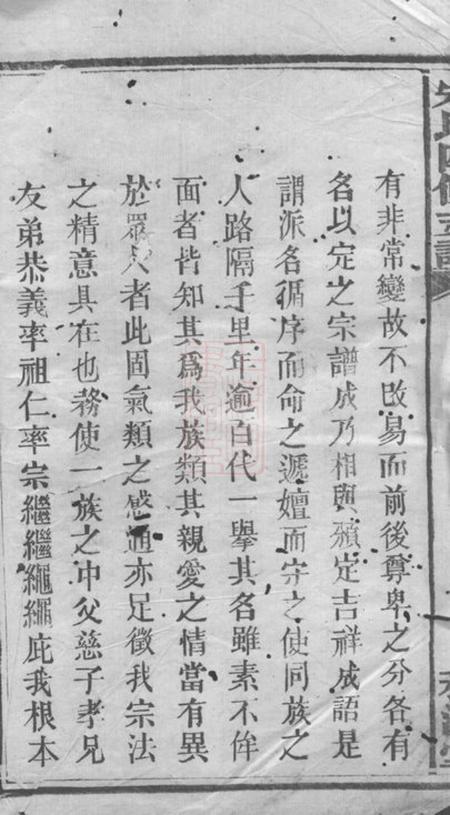 氏四修支譜
有非常變故不改易而前後尊卑之分各有
名以定之宗譜成乃相與預定吉祥成語是
謂派名循序而命之遞嬗而守之使同族之
人路隔千里年逾百代一舉其名雖素不侔
面者皆知其為我族類其親愛之情當有異
於眾人者此固氣類之感通亦足徵我宗法
之精意具在也務使一族之中父慈子孝兄
友弟恭義率祖仁率宗繼繼繩繩庇我根本